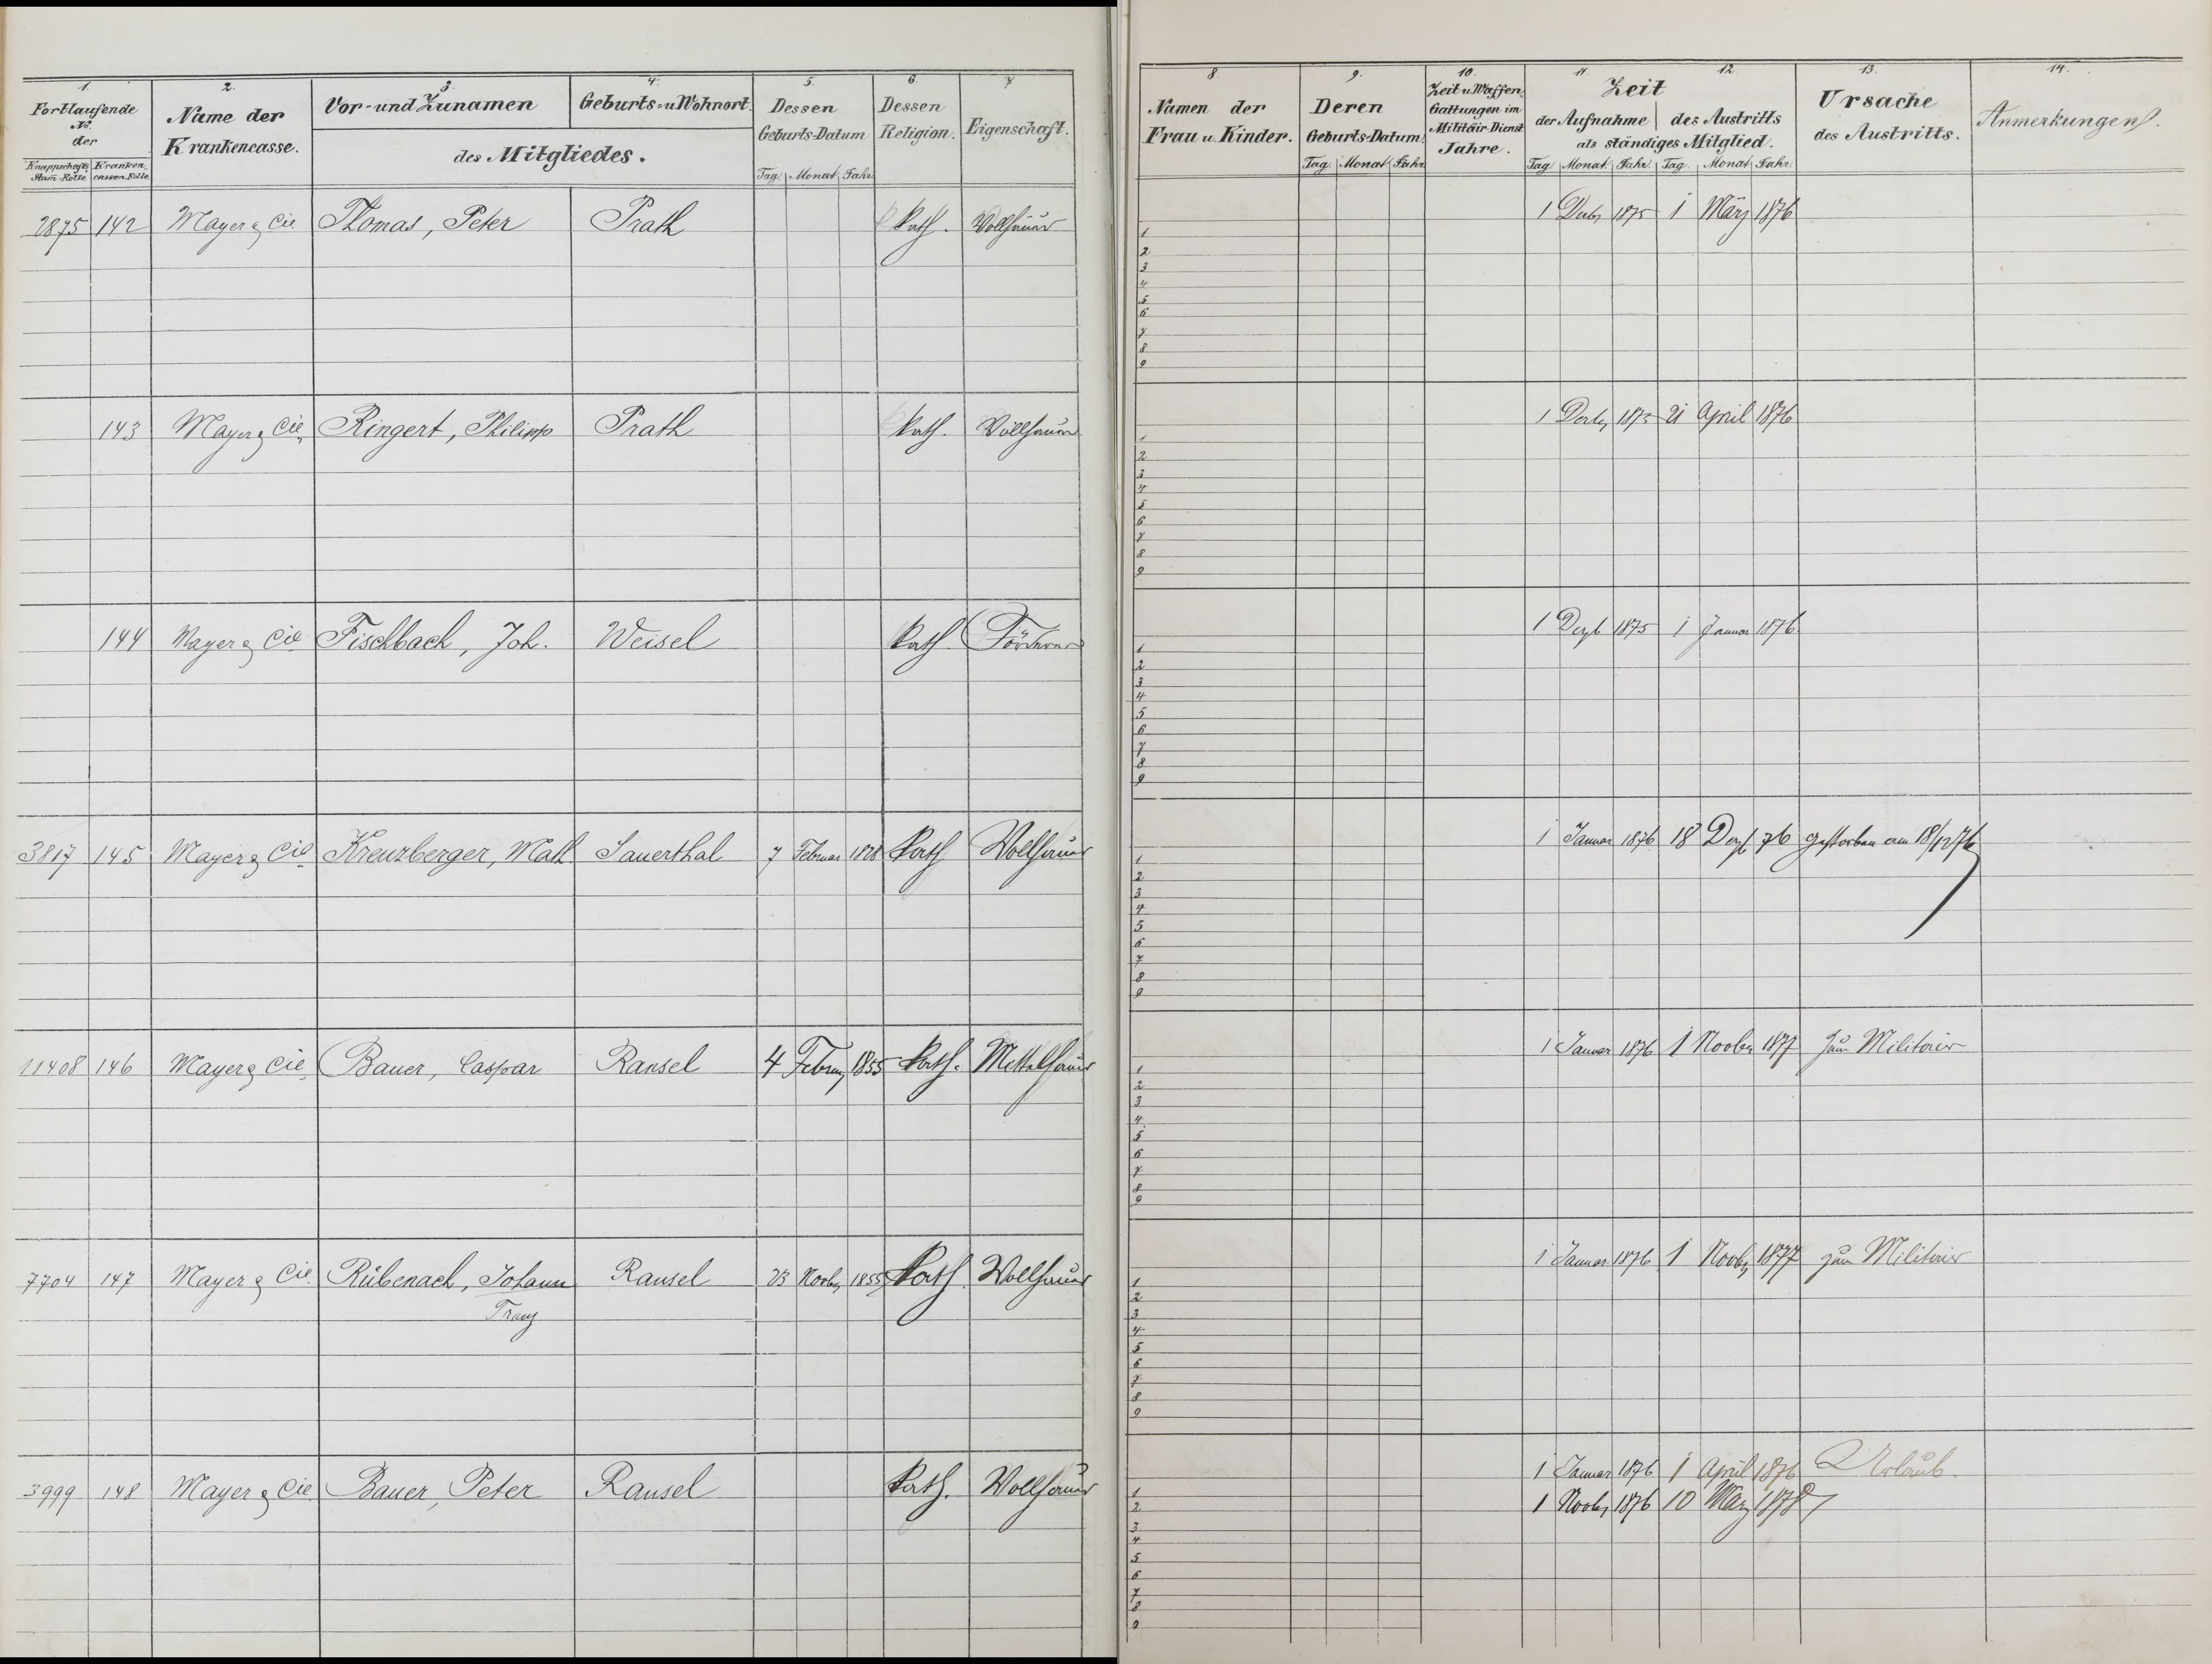 1. 2. 3. 4. 5. 6. 7
Fortlaufende No. der
Knappschafts Stam-Rolle Kranken cassen Rolle
Name der Krankencasse.
Vor- und Zunamen Geburts- u Wohnort.
des Mitgliedes.
Dessen Geburts-Datum
Tag. Monat Jahr
Dessen Religion.
Eigenschaft.
2875 142 Mayer & Cie Thomas, Peter Prath Kath. Vollhauer
143 Mayer & Cie. Ringert, Philipp Prath Kath. Vollhauer
144 Mayer & Cie Fischbach, Joh. Weisel Kath. Förderer
3817 145 Mayer & Cie Kreuzberger, Math Sauerthal 7 Februar 1828 Kath Vollhauer
11408 146 Mayer & Cie. Bauer, Caspar Ransel 4 Februar 1855 Kath. Mittelhauer
7704 147 Mayer & Cie. Rübenach, Johann Ransel 23 Novbr 1855 Kath. Vollhauer
Franz
3999 148 Mayer & Cie. Bauer, Peter Ransel Kath. Vollhauer
8. 9. 10. 11. 12. 13. 14.
Namen der Frau u. Kinder.
Deren Geburts-Datum.
Tag. Monat Jahr
Zeit u. Waffen Gattungen im Militäir-Dienst Jahre.
Zeit
der Aufnahme des Austritts
als ständiges Mitglied.
Tag Monat. Jahr. Tag. Monat. Jahr.
Ursache des Austritts.
Anmerkungen.
1 Dezbr 1875 1 März 1876
1
2
3
4
5
6
7
8
9
1 Dezbr 1875 21 April 1876
1
2
3
4
5
6
7
8
9
1 Dezb 1875 1 Januar 1876
1
2
3
4
5
6
7
8
9
1 Januar 1876 18 Dezb 76 gestorben am 18/12 76
1
2
3
4
5
6
7
8
9
1 Januar 1876 1 Novbr 1877 zum Militair
1
2
3
4
5
6
7
8
9
1 Januar 1876 1 Novbr 1877 zum Militair
1
2
3
4
5
6
7
8
9
1 Januar 1876 1 April 1876 Urlaub.
1
1 Novbr 1876 10 März 1878
2
3
4
5
6
7
8
9